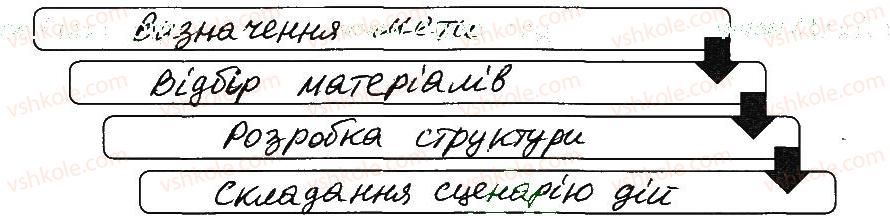 Визначення мети
Відбір матеріалів
Розробка структури
Складання сценарію дій